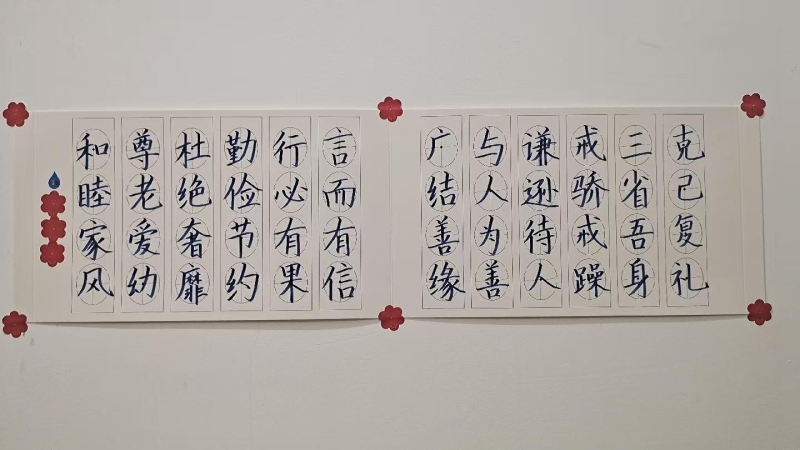 克己复礼
三省吾身
戒骄戒躁
谦逊待人
与人为善
广结善缘
言而有信
行必有果
勤俭节约
杜绝奢靡
尊老爱幼
和睦家风